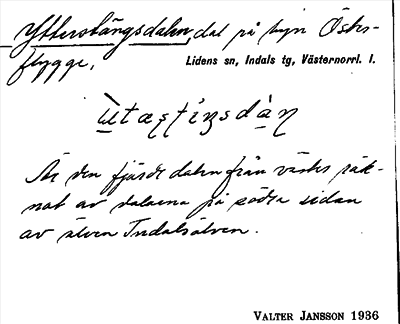 Ytterstängsdalen, dal på byn Öster-
flygge,
Lidens sn, Indals tg, Västernorrl. l.
Är den fjärde dalen från väster räk-
nat av dalarna på södra sidan
av älven Indalsälven.
VALTER JANSSON 1936